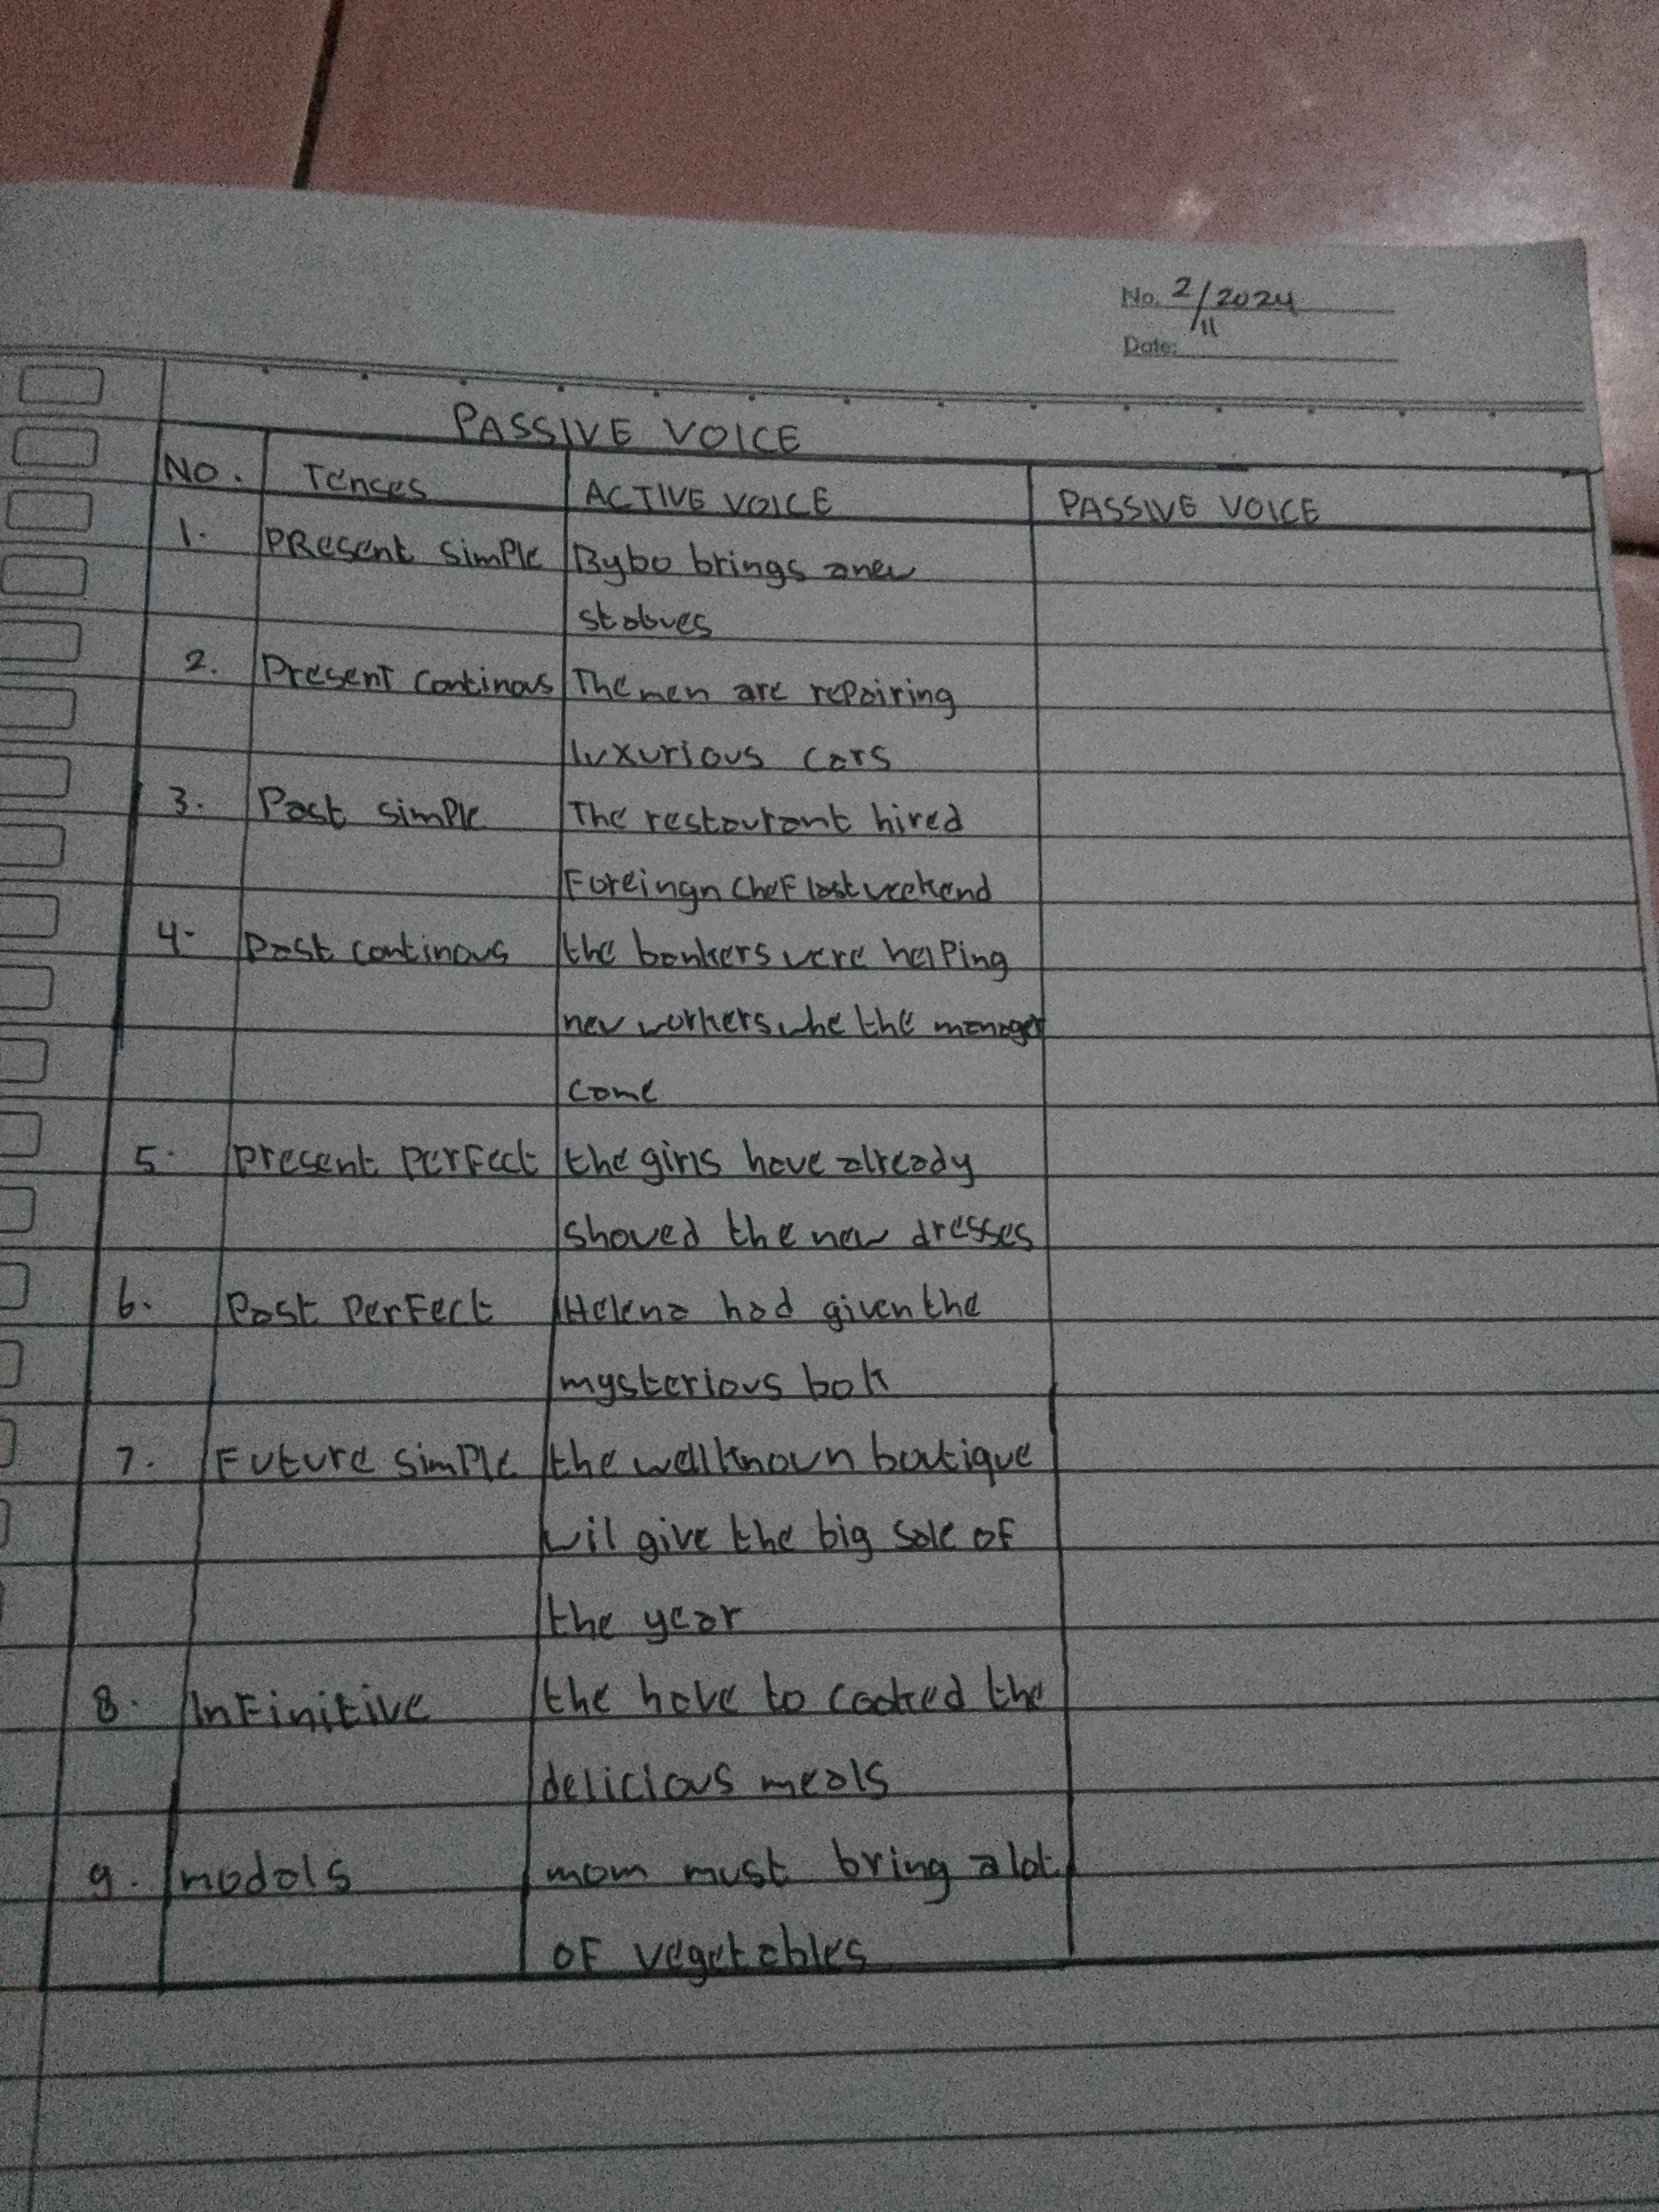 No. 2/11/2024
Date:
PASSIVE VOICE
NO. Tenses ACTIVE VOICE PASSIVE VOICE
1. PResent simPle Bybo brings a new
stabues
2. Present continous The men are repairing
luxurious cars
3. Past simPle The restaurant hired
Foreingn cheF last weekend
4. Past continous the bankers were helPing
new workers whe the manager
come
5. present perFect the girls have already
showed the new dresses
6. Past PerFect Helena had given the
mysterious bok
7. Future simPle the wellknown boutique
wil give the big sale oF
the year
8. InFinitive the have to cooked the
delicious meals
9. modals mom must bring a lot
OF vegetables